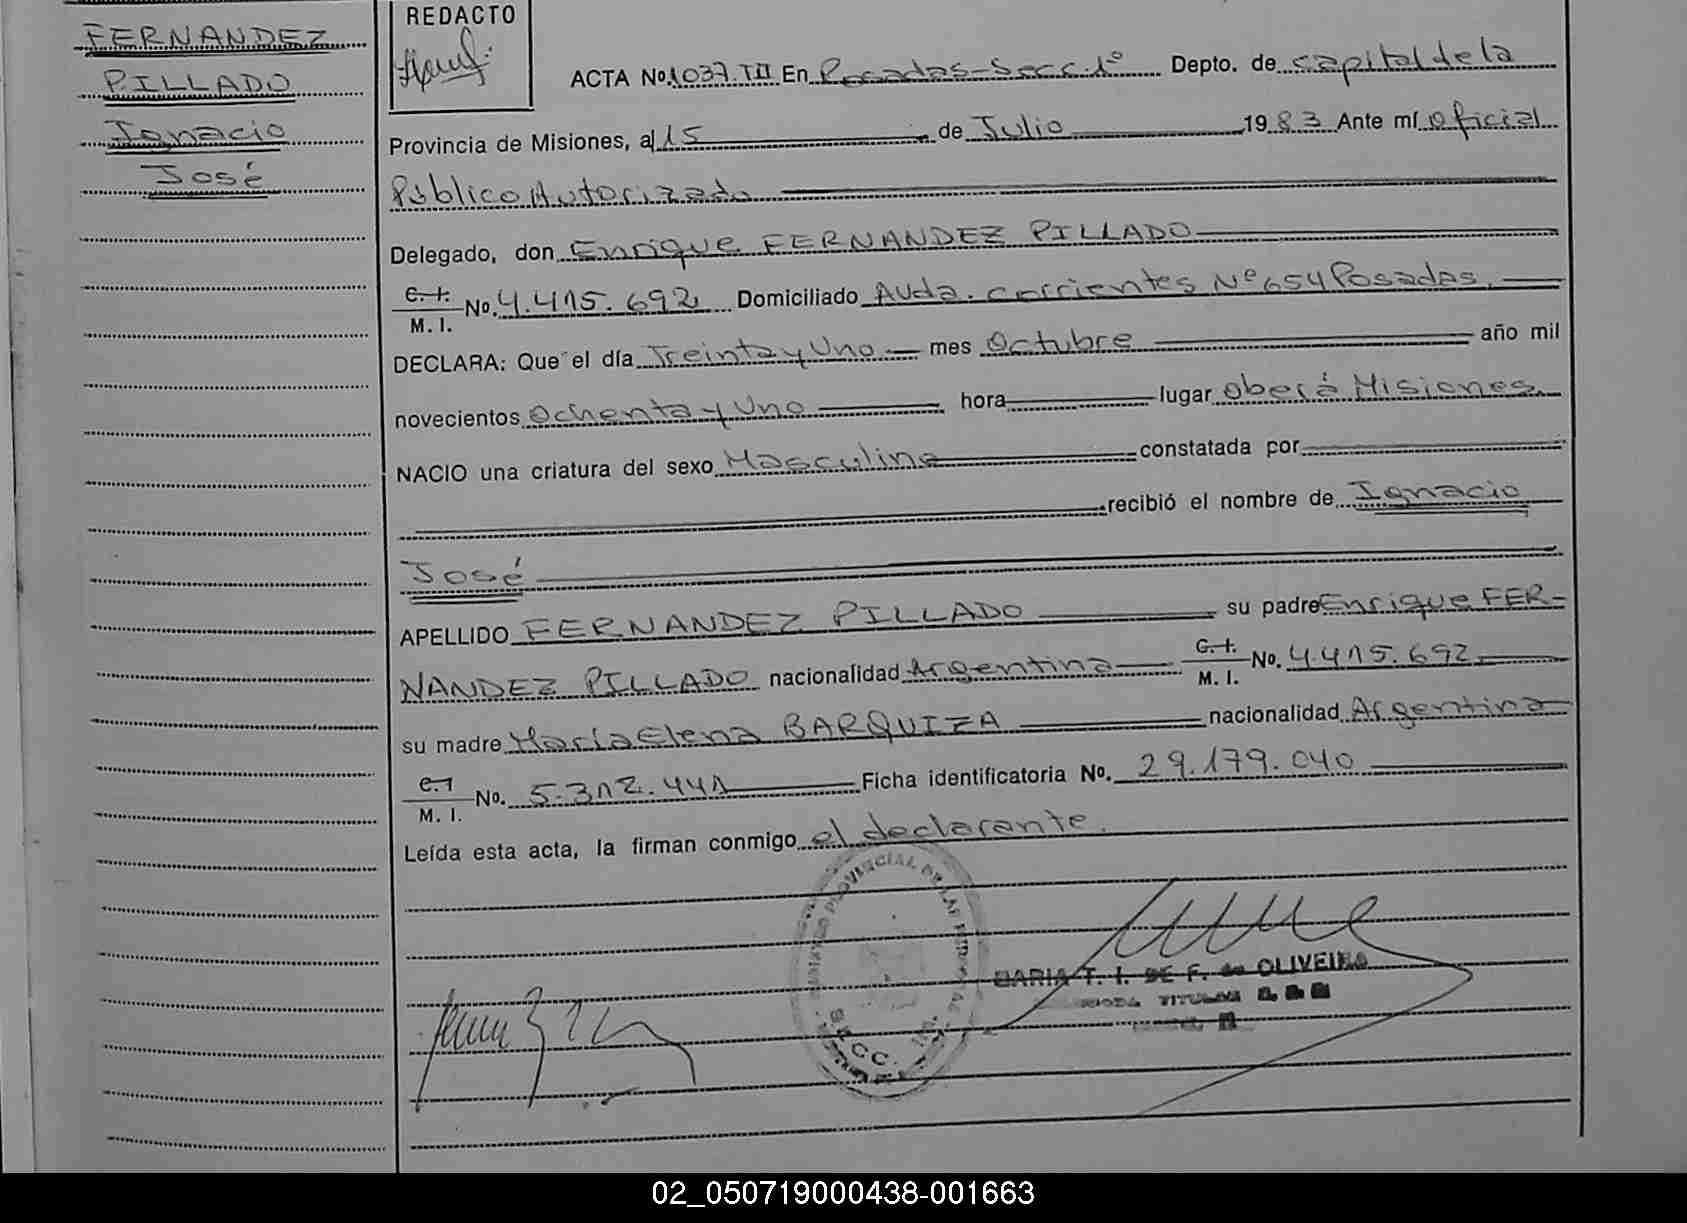 FERNANDEZ
PILLADO
Ignacio
José
REDACTO
ACTA No. 1037. TII En Posadas-Secc. 1º Depto. de Capital de la
Provincia de Misiones, al 15 de Julio 1983 Ante mí Oficial
Público Autorizado
Delegado, don Enrique FERNANDEZ PILLADO
C. I. M. I. No. 4.415.692 Domiciliado Avda. Corrientes Nº 654 Posadas.
DECLARA: Que el día Treinta y Uno mes Octubre año mil
novecientos Ochenta y Uno hora lugar Oberá Misiones
NACIO una criatura del sexo Masculino constatada por
recibió el nombre de Ignacio
José
APELLIDO FERNANDEZ PILLADO su padre Enrique FER-
NANDEZ PILLADO nacionalidad Argentina C. I. M. I. No. 4.415.692
su madre María Elena BARQUIZA nacionalidad Argentina
C. I M. I. No. 5.312.441 Ficha identificatoria No. 29.179.040
Leída esta acta, la firman conmigo el declarante.
PROVINCIAL DE LAS PERSONAS
SECC.
MARIA T. I. DE F. de OLIVEIRA
TITULAR
02_050719000438-001663